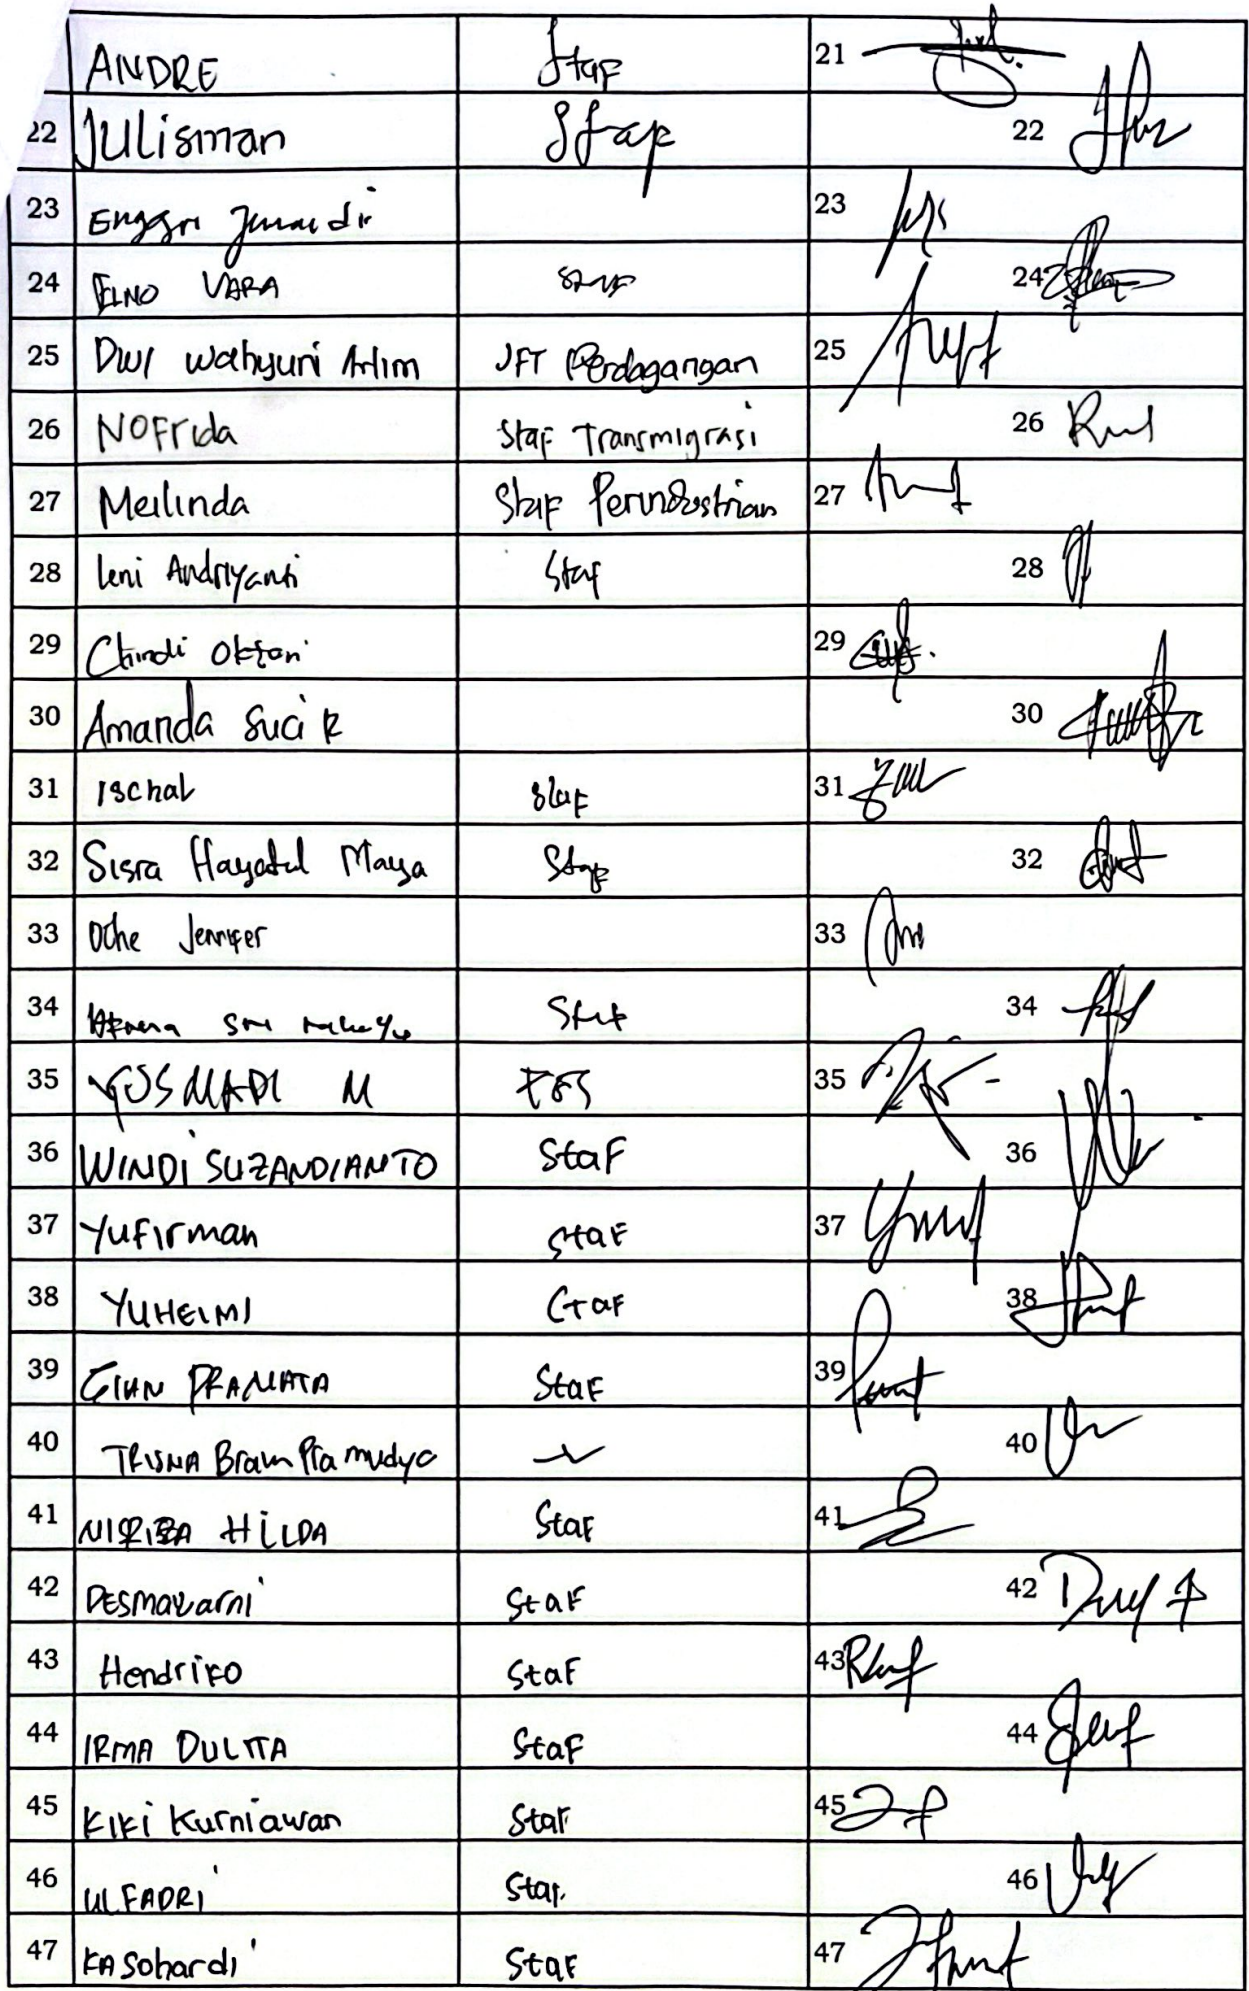 ANDRE Staf 21
22 JULisman Staf 22
23 Enggri Junaidi 23
24 ELNO VARA Staf 24
25 DWI Wahyuni Arlim JFT Perdagangan 25
26 NOFrida Staf Transmigrasi 26
27 Meilinda Staf Perindustrian 27
28 Leni Andriyanti Staf 28
29 Chindi Oktari 29
30 Amanda Suci R 30
31 Ischal Staf 31
32 Sisra Hayatul Maysa Staf 32
33 Oche Jennifer 33
34 Sri Staf 34
35 YUSMADI M 35
36 WINDI SUZANDIANTO Staf 36
37 Yufirman Staf 37
38 YUHELMI Staf 38
39 GIAN PRAMATA Staf 39
40 TRISNA Bram Pramudya 40
41 HILDA Staf 41
42 Desmawarni Staf 42
43 Hendriko Staf 43
44 IRMA DULITA Staf 44
45 KIKI Kurniawan Staf 45
46 ULFADRI Staf 46
47 KASohardi Staf 47